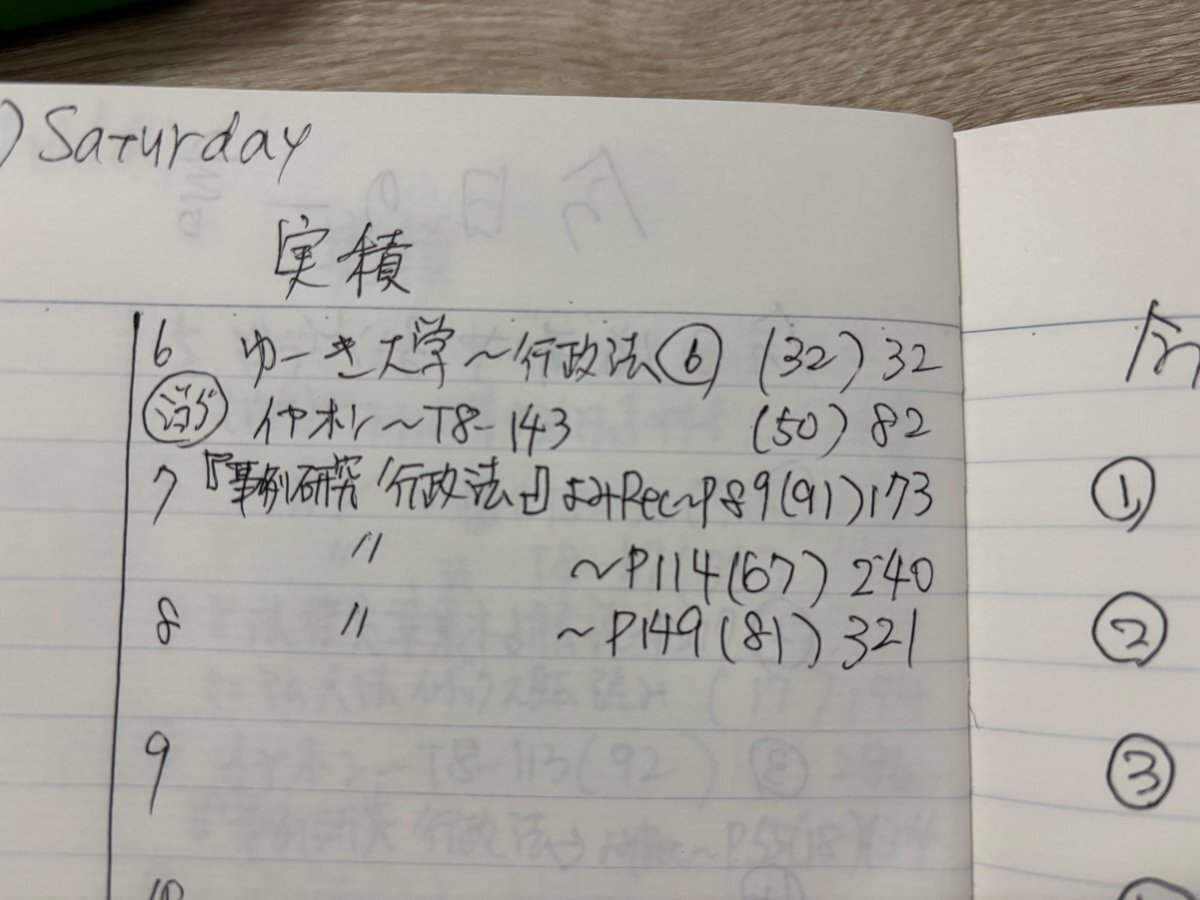 ) Saturday
実積
6 ゆーき大学～行政法⑥ (32) 32
イヤホン～T8-143 (50) 82
7 『事例研究 行政法』よみRec～P89(91)173
〃 ～P114(67) 240
8 〃 ～P149(81) 321
9
10
今
①
②
③